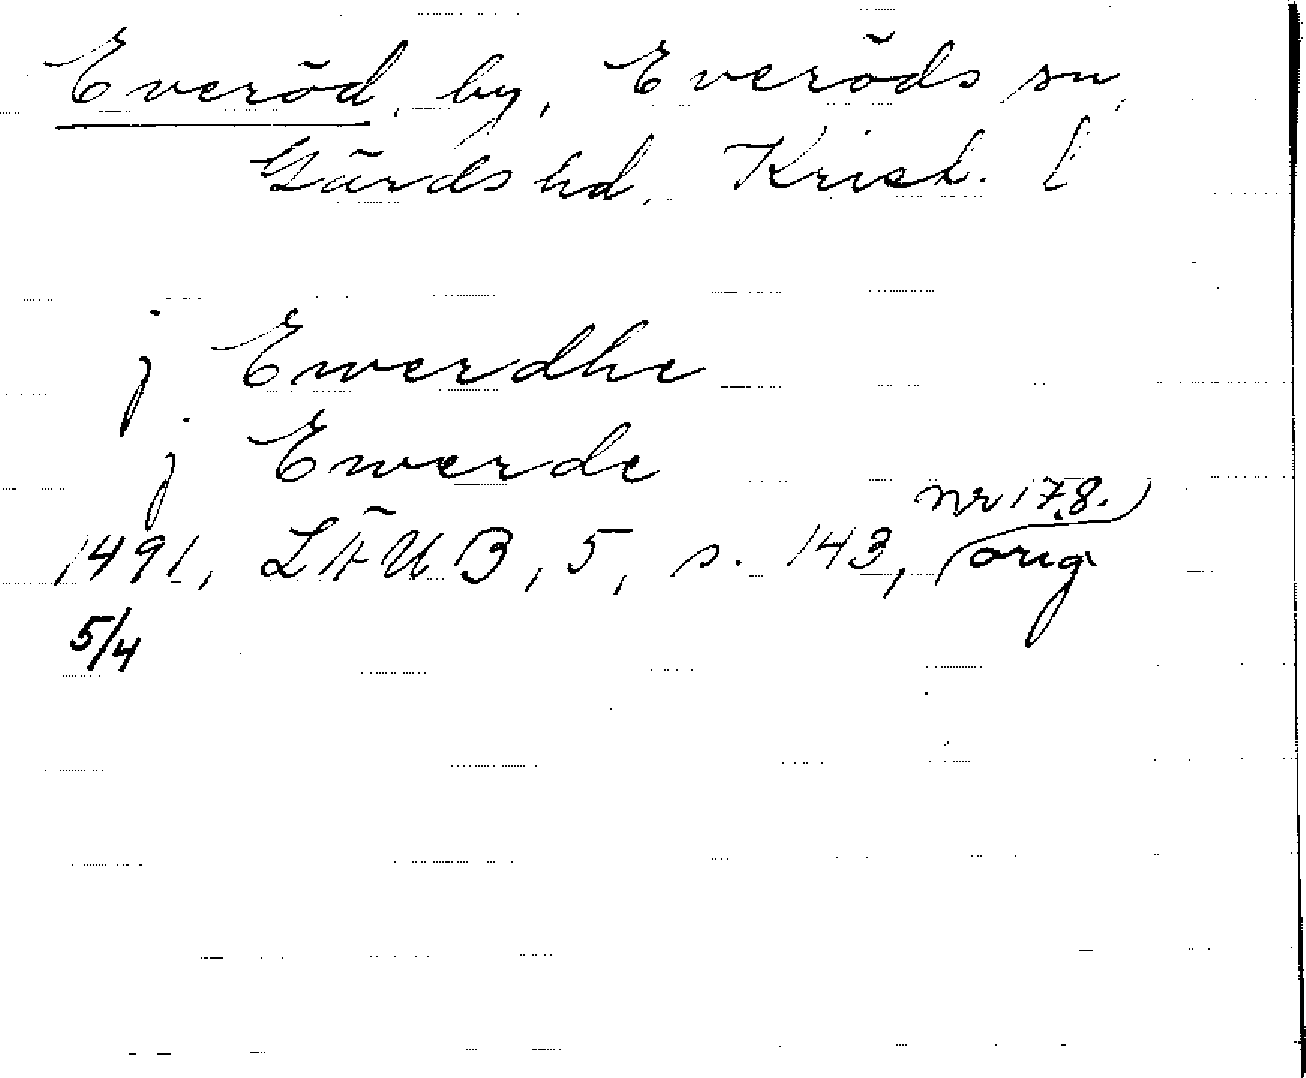 Everöd, by, Everöds sn,
Gärds hd, Krist. l
j Ewerdhe
j Ewerde
nr 178.
1491, LÄUB, 5, s. 143, orig
5/4